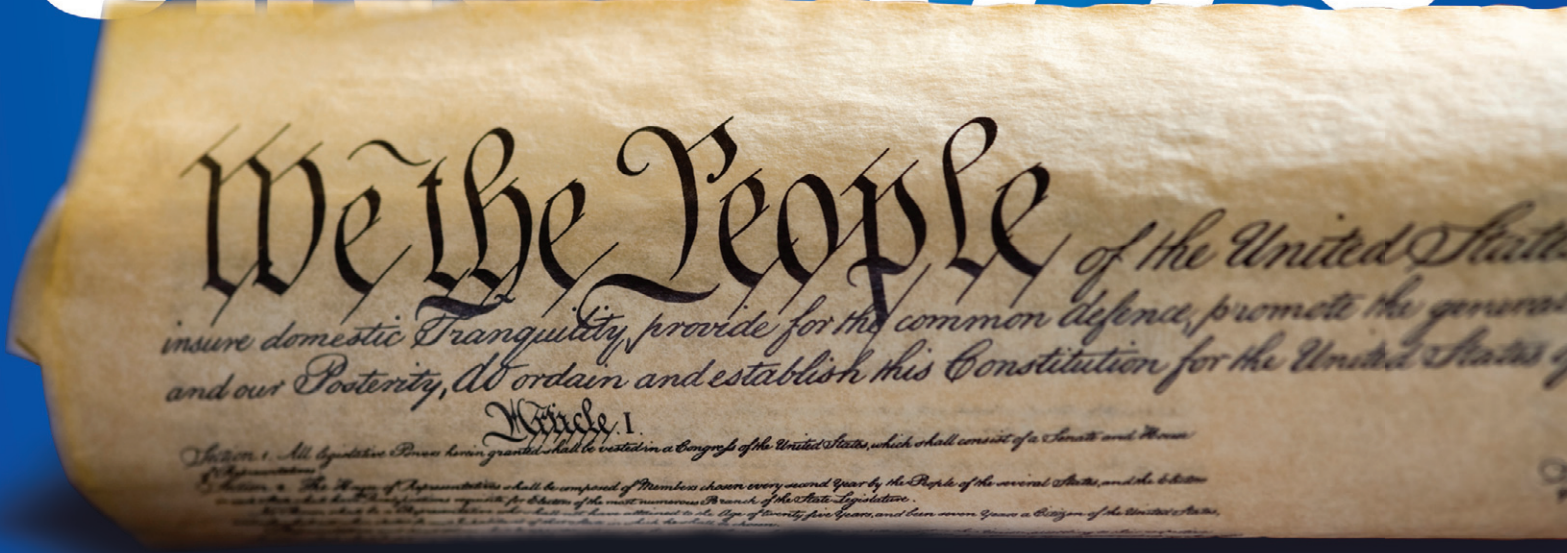 We the People of the United State
insure domestic Tranquility, provide for the common defence, promote the genera
and our Posterity, do ordain and establish this Constitution for the United States
Article. I.
Section 1. All legislative Powers herein granted shall be vested in a Congress of the United States, which shall consist of a Senate and House
of Representatives
Section 2. The House of Representatives shall be composed of Members chosen every second Year by the People of the several States, and the Electors
requisite for Electors of the most numerous Branch of the State Legislature.
to the Age of twenty five Years, and been seven Years a Citizen of the United States,